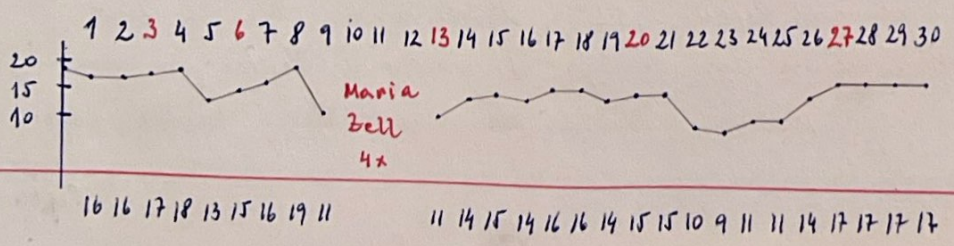 1 2 3 4 5 6 7 8 9 10 11 12 13 14 15 16 17 18 19 20 21 22 23 24 25 26 27 28 29 30
20
15
10
Maria
Zell
4x
16 16 17 18 13 15 16 19 11 11 14 15 14 16 16 14 15 15 10 9 11 11 14 17 17 17 17